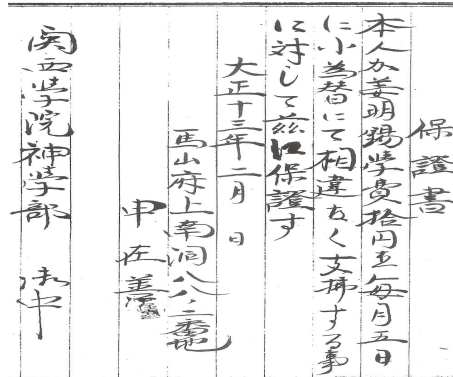 保證書
本人カ姜明錫学費拾円五毎月五日
に小為替にて相違なく支拂する事
に対して茲に保證す
大正十三年二月　日
馬山府上南洞八八ノ二番地
申在善
関西学院神学部　御中